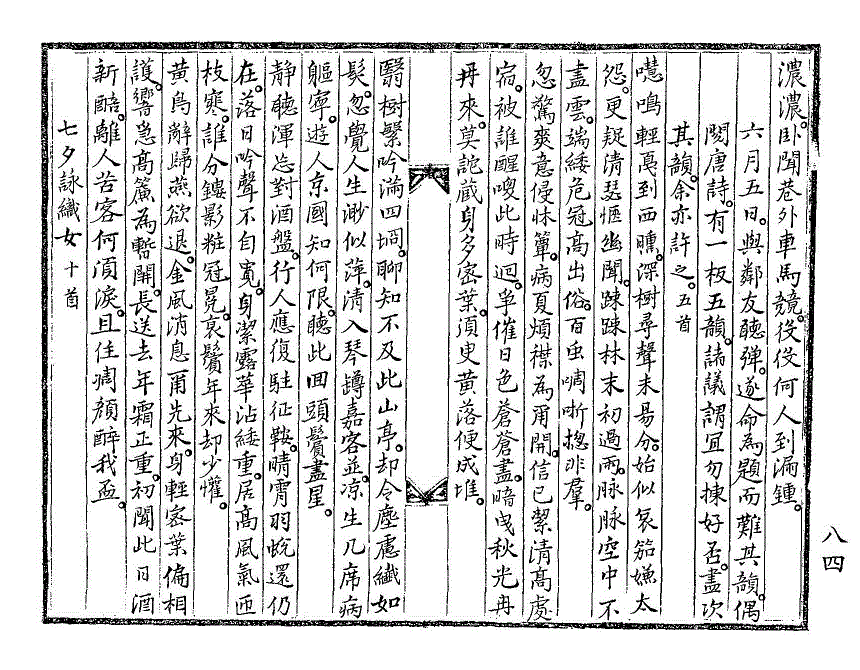 濃濃。卧聞巷外車馬競。役役何人到漏鍾。
六月五日。與鄰友聽蟬。遂命為題而難其韻。偶
閱唐詩。有一板五韻。諸議謂冝勿揀好否。盡次
其韻。余亦許之。五首
嘒鳴輕戞到西曛。深樹尋聲未易分。始似哀笳嫌太
怨。更疑清瑟愜幽聞。踈踈林末初過雨。脉脉空中不
盡雲。端緌危冠高出俗。百虫啁哳揔非羣。
忽驚爽意侵牀簟。病夏煩襟為爾開。信已絜清高處
宿。被誰醒嗖此時迴。爭催日色蒼蒼盡。暗曳秋光冉
冉來。莫詑蔵身多宻葉。須臾黃落便成堆。
翳樹繁吟滿四坰。聊知不及此山亭。却令塵慮纖如
髮。忽覺人生渺似萍。清入琴罇嘉客並。凉生几席病
軀寧。遊人京國知何限。聽此回頭鬢盡星。
靜聽渾忘對酒盤。行人應復駐征鞍。晴霄羽蛻還仍
在。落日吟聲不自寬。身潔露華沾緌重。居高風氣迊
枝寒。誰分鏤影粧冠冕。哀鬢年來却少懽。
黃鳥辭歸燕欲退。金風消息爾先來。身輕宻葉偏相
護。響急高簾為暫開。長送去年霜正重。初聞此日酒
新醅。離人苦客何須淚。且任凋顏醉我盃。
七夕詠織女十首
八四